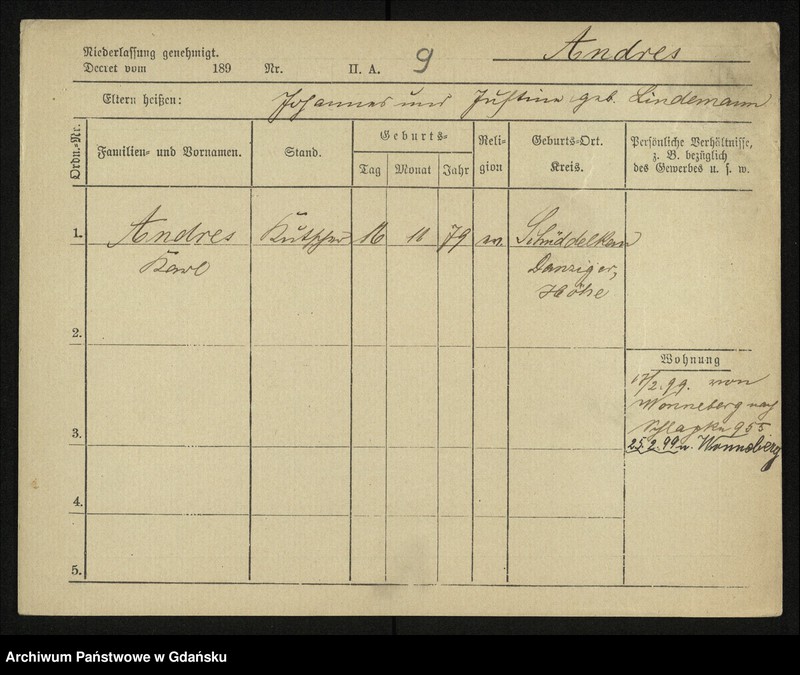 Niederlassung genehmigt.
Decret vom 189 Nr. II. A. 9
Andres
Eltern heißen: Johannes und Justine geb. Lindemann
Ordn.-Nr.
Familien- und Vornamen.
Stand.
Geburts-
Tag Monat Jahr
Reli-
gion
Geburts-Ort.
Kreis.
Persönliche Verhältnisse,
z. B. bezüglich
des Gewerbes u. s. w.
1. Andres Kutscher 16 11 79 ev. Schüddelkau
Karl Danziger,
Höhe
2.
Wohnung
17/2.99. von
Wonneberg nach
Schlapke 955
3.
25.2.99 n. Wonneberg
4.
5.
Archiwum Państwowe w Gdańsku